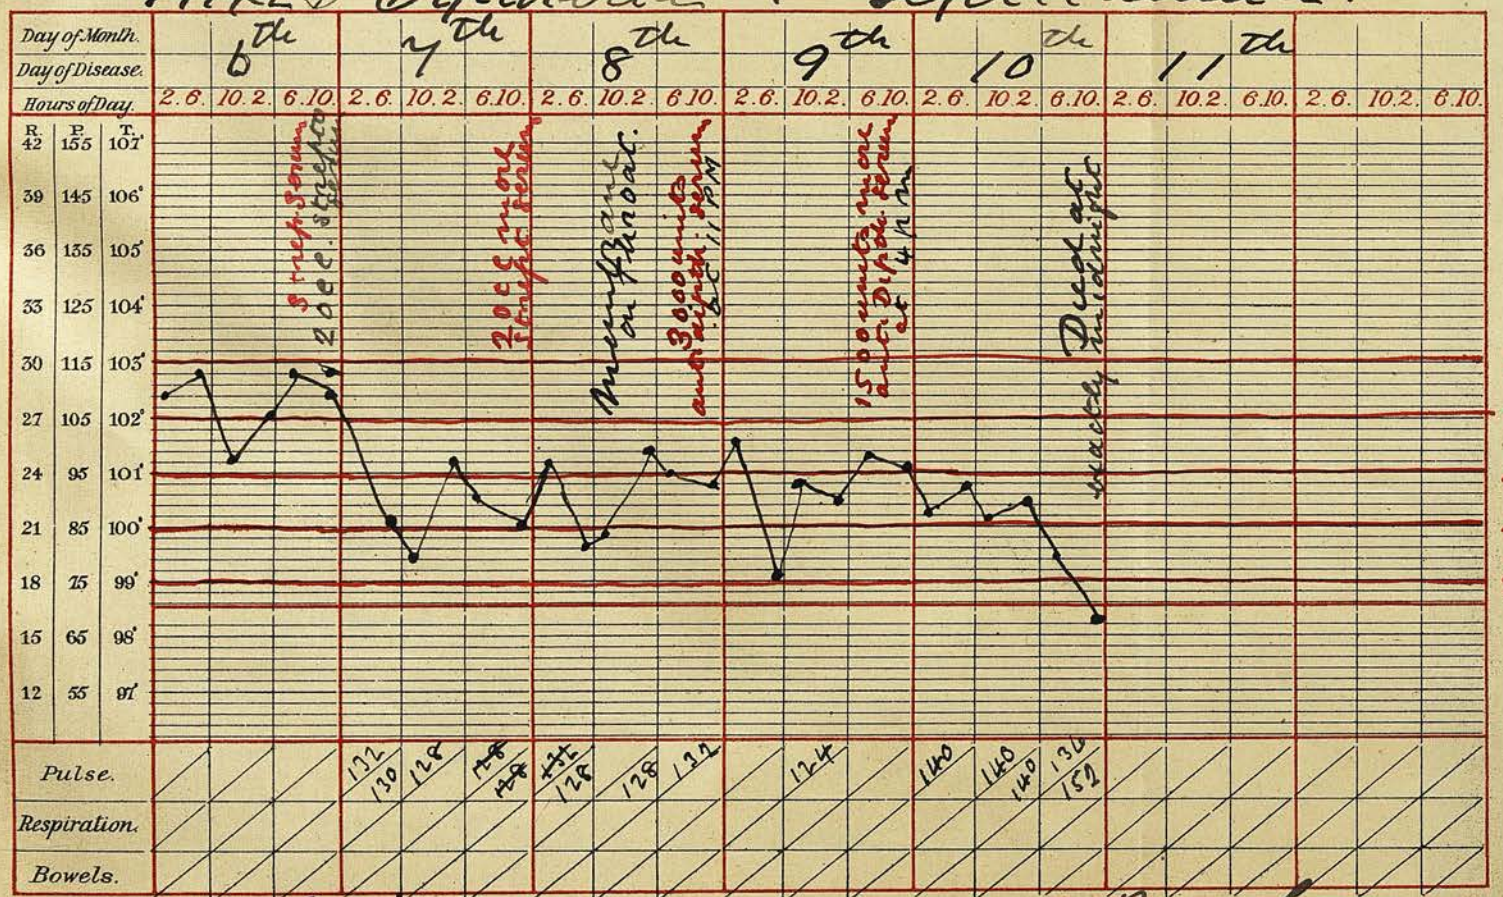 Day of Month.
6th 7th 8th 9th 10th 11th
Day of Disease.
Hours of Day. 2. 6. 10. 2. 6. 10. 2. 6. 10. 2. 6. 10. 2. 6. 10. 2. 6. 10. 2. 6. 10. 2. 6. 10. 2. 6. 10. 2. 6. 10. 2. 6. 10. 2. 6. 10. 2. 6. 10. 2. 6. 10.
R. P. T.
42 155 107°
39 145 106°
36 135 105°
33 125 104°
30 115 103°
27 105 102°
24 95 101°
21 85 100°
18 75 99°
15 65 98°
12 55 97°
Strep. Serum
20 c c. strepto
serum
20 c c more
strept serum
Membrane
on throat.
3000 units
anti diphth. serum
at 11 PM
1500 units more
anti Diphth. serum
at 4 p m
Died at
exactly midnight
Pulse. 132 130 128 128 128 132 128 128 132 124 140 140 140 136 152
Respiration.
Bowels.